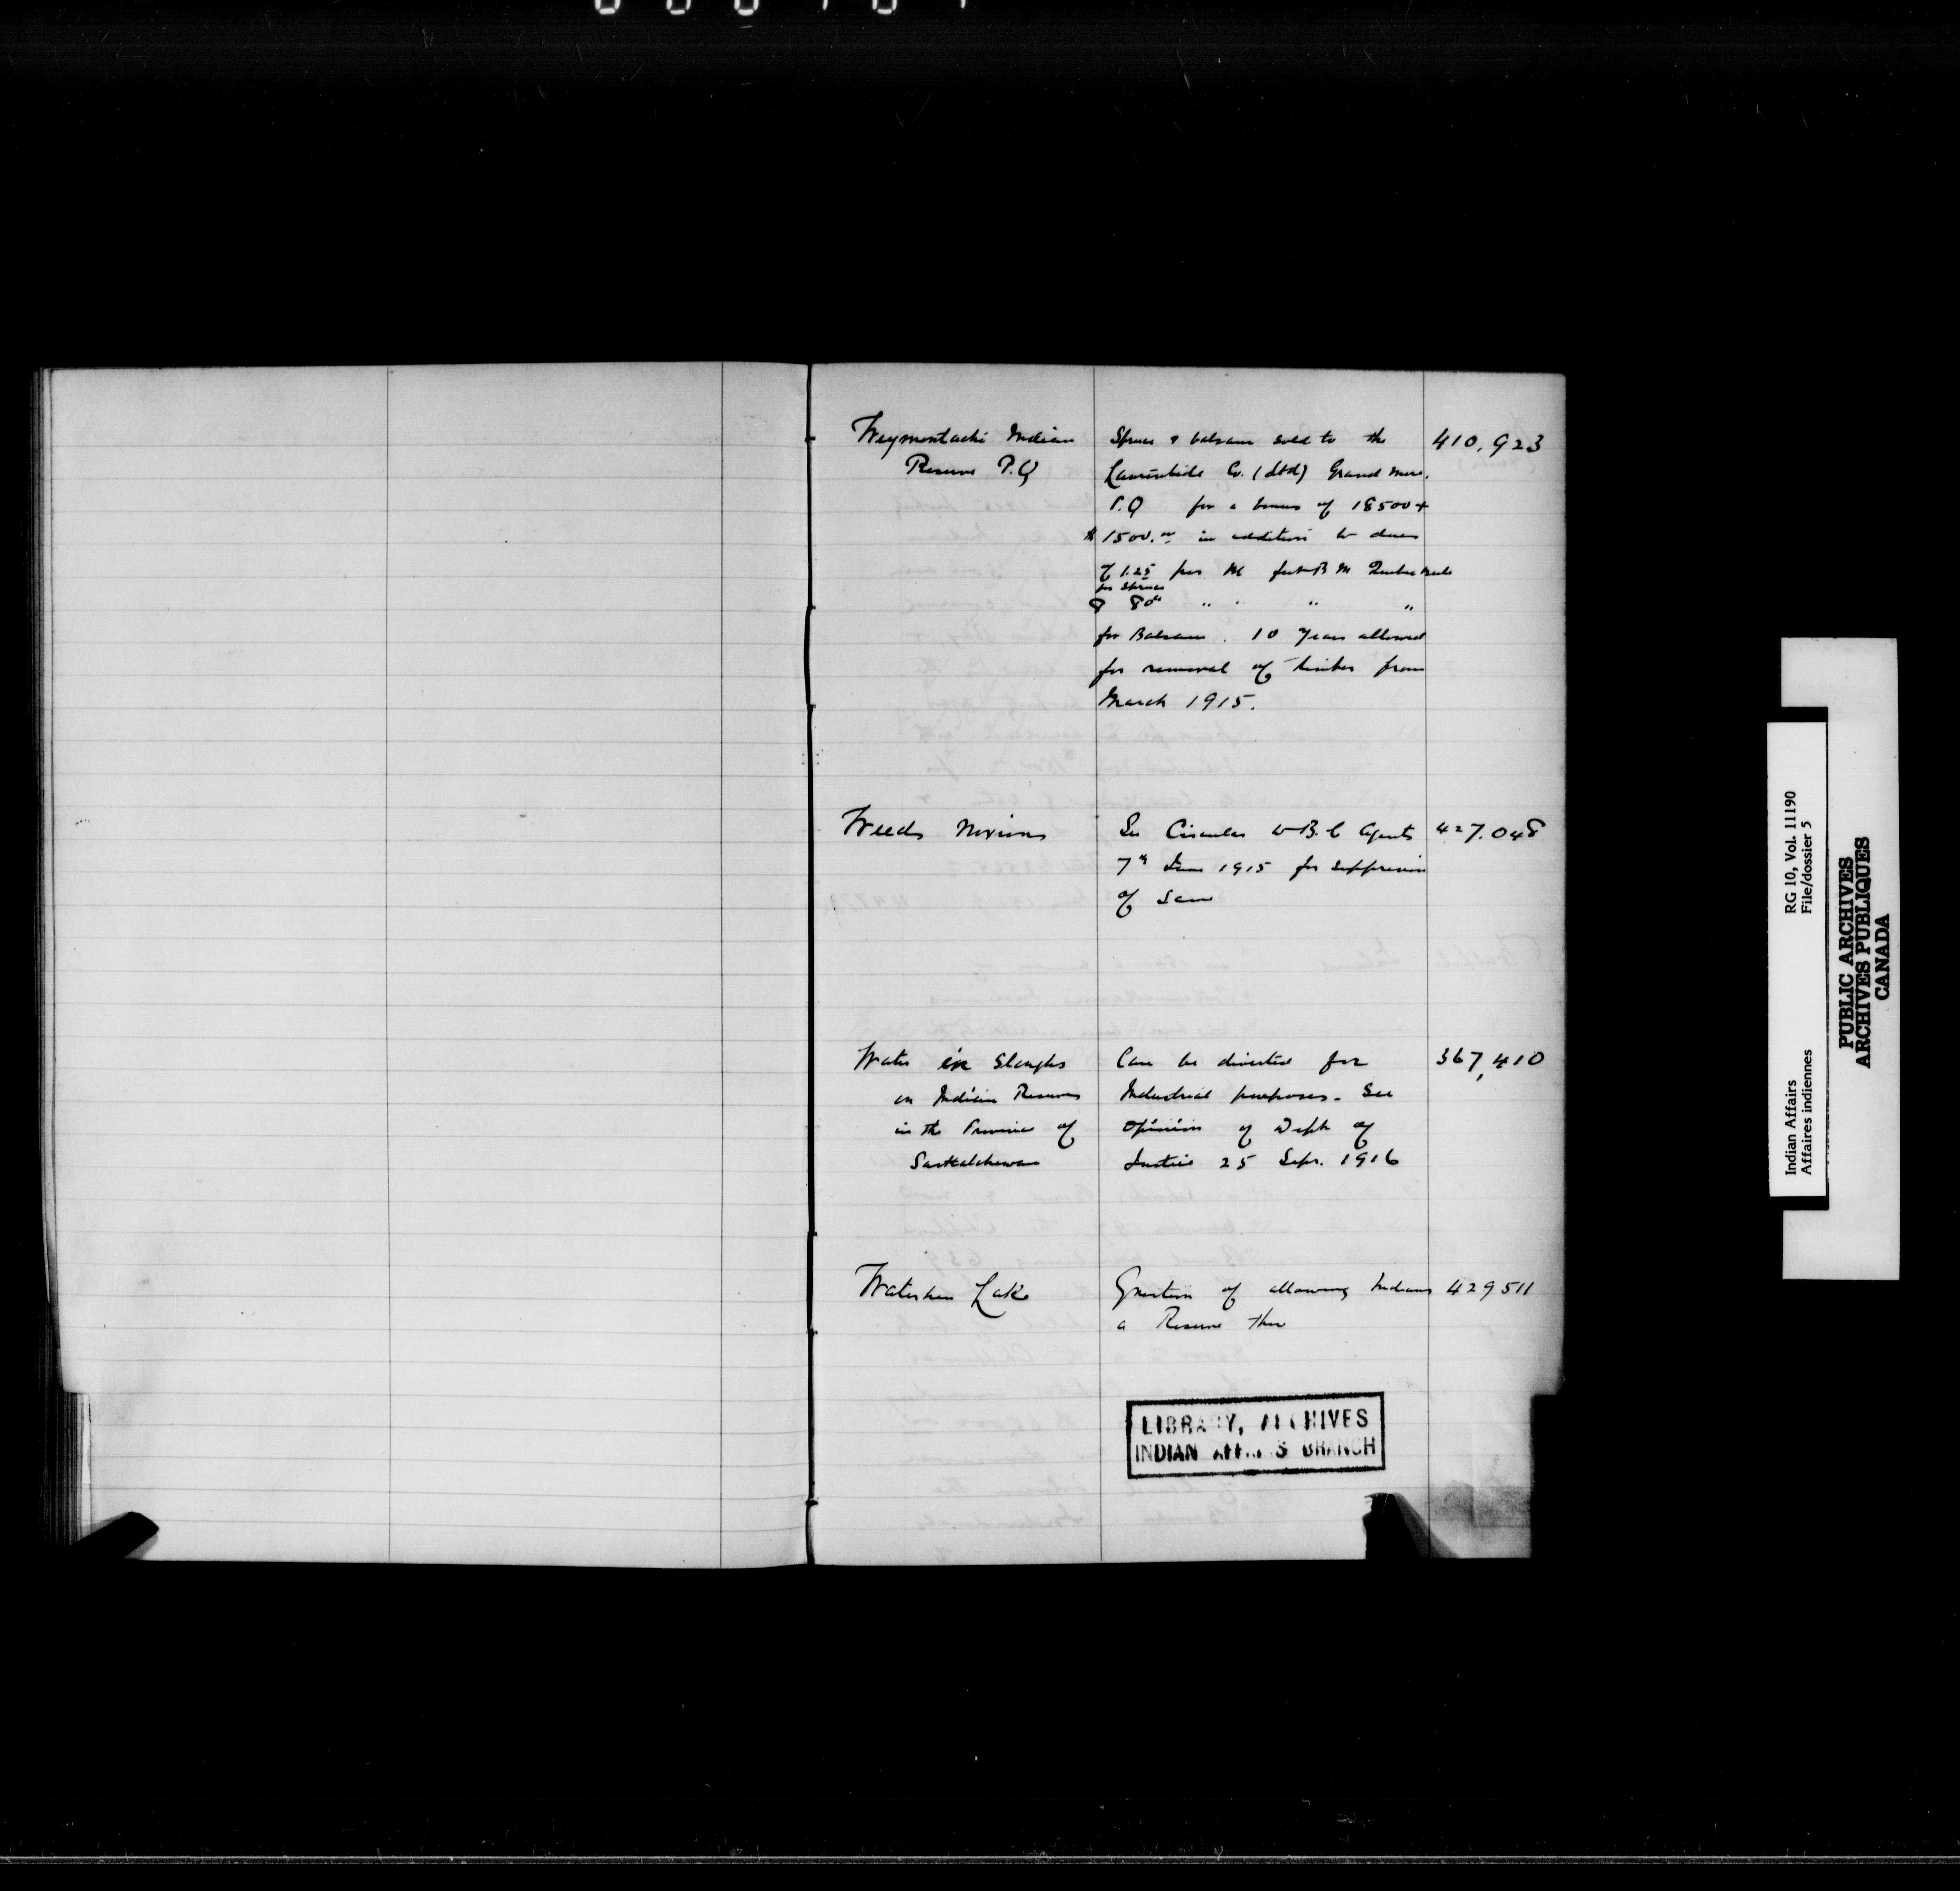 Weymontachi Indian
Reserve P.Q
Spruce & balsam sold to the
Laurentide Co. (Ltd) Grand Mere.
P.Q for a bonus of 18500 +
$1500.00 in addition to dues
of 1.25 per M feet B M Quebec
for Spruce
& 80 " " " "
for Balsam. 10 years allowed
for removal of timber from
March 1915.
410,923
Weeds Noxious
See Circular to B.C Agents
7th June 1915 for suppression
of same
427.048
Water in Sloughs
on Indian Reserves
in the Province of
Saskatchewan
Can be diverted for
Industrial purposes. See
opinion of Dept of
Justice 25 Sept. 1916
367,410
Waterhen Lake
Question of allowing Indians
a Reserve there
429511
LIBRARY, ARCHIVES
INDIAN AFFAIRS BRANCH
Indian Affairs RG 10, Vol. 11190
Affaires indiennes File/dossier 5
PUBLIC ARCHIVES
ARCHIVES PUBLIQUES
CANADA